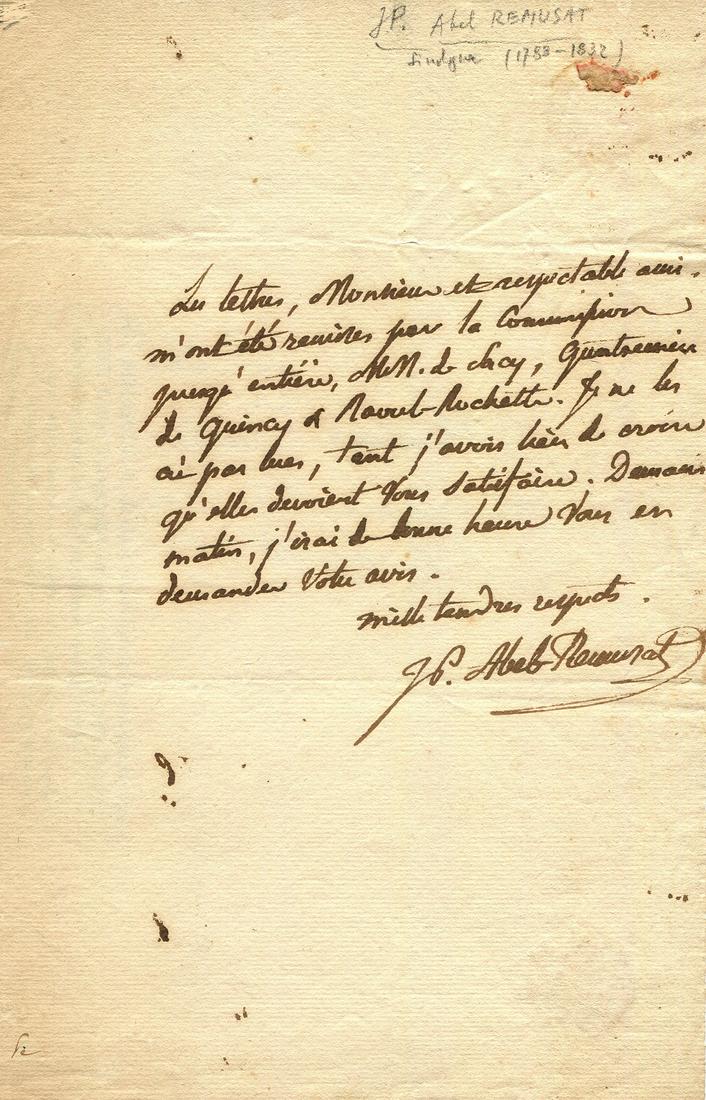 J.P. Abel REMUSAT
Sinologue (1788-1832)
Les lettres, Monsieur et respectable ami,
m'ont été remises par la Commission
presqu' entière, MM. de Sacy, Quatremère
de Quincy et Raoul-Rochette. Je ne les
ai pas lues, tant j'avois lieu de croire
qu'elles devoient Vous satisfaire. Demain
matin, j'irai de bonne heure Vous en
demander Votre avis.
mille tendres respects.
JP. Abel-Remusat